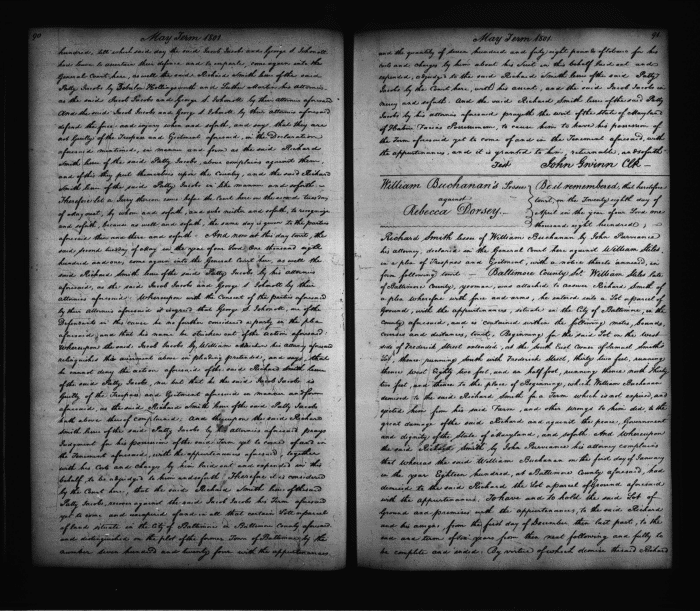 90
May Term 1801
hundred, till which said day the said Jacob Jacobs and George S. Schnoolt
have leave to ascertain their defence and to imparle, come again into the
General Court here, as well the said Richard Smith lessee of the said
Patty Jacobs by Zebulon Hollingsworth and Luther Martin his attornies
as the said Jacob Jacobs and George S. Schnoolt by their attornies aforesaid
And the said Jacob Jacobs and George S. Schnoolt, by their attornies aforesaid
defend the force and injury when and soforth, and say, that they are
not Guilty of the Trespass and Ejectment aforesaid, in the Declaration
aforesaid mentioned, in manner and form as the said Richard
Smith lessee of the said Patty Jacobs, above complains against them
and of this they put themselves upon the Country, and the said Richard
Smith lessee of the said Patty Jacobs in like manner and soforth
Therefore let a Jury thereon come before the Court here on the second tuesday
of May next, by whom and soforth, and who neither and soforth, to recognize
and soforth, because as well and soforth, the same day is given to the parties
aforesaid then and there and soforth. And now at this day towit, the
said second tuesday of May in the year of our Lord One thousand eight
hundred and one, come again into the General Court here, as well the
said Richard Smith lessee of the said Patty Jacobs, by his attornies
aforesaid, as the said Jacob Jacobs and George S. Schnoolt by their
attornies aforesaid; Whereupon with the Consent of the parties aforesaid
by their attornies aforesaid it agreed that George S. Schnoolt, one of the
Defendants in this cause, be no further considered a party in the plea
aforesaid, and that his name be stricken out of the action aforesaid:
Whereupon the said Jacob Jacobs by William his attorney aforesaid
relinquishes the averment above in pleading pretended, and says, that
he cannot deny the action aforesaid of the said Richard Smith lessee
of the said Patty Jacobs, nor but that he the said Jacob Jacobs is
guilty of the Trespass and Ejectment aforesaid in manner and form
aforesaid, as the said Richard Smith lessee of the said Patty Jacobs
hath above thereof complained. And thereupon the said Richard
Smith lessee of the said Patty Jacobs by his attornies aforesaid prays
Judgment for his possession of the said Term yet to come of and in
the Tenement aforesaid, with the appurtenances aforesaid, together
with his Costs and Charges by him laid out and expended in this
behalf, to be adjudged to him and soforth. Therefore it is considered
by the Court here, that the said Richard Smith lessee of the said
Patty Jacobs, recover against the said Jacob Jacobs his Term aforesaid
yet to come and unexpired of and in all that certain Lott or parcel
of land situate in the City of Baltimore in Baltimore County aforesaid
and distinguished on the plot of the former Town of Baltimore, by the
number seven hundred and twenty four with the appurtenances
May Term 1801.
91
and the quantity of seven hundred and forty eight pounds of tobacco for his
costs and charges by him about his Suit in this behalf laid out and
expended, adjudged to the said Richard Smith lessee of the said Patty
Jacobs by the Court here, with his assent, and the said Jacob Jacobs in
mercy and soforth. And the said Richard Smith lessee of the said Patty
Jacobs by his attornies aforesaid prayeth the writ of the State of Maryland
of Habere Facias Possessionem, to cause him to have his possession of
the Term aforesaid yet to come of and in the Tenement aforesaid, with
the appurtenances, and it is granted to him, returnable, and soforth
Test John Gwinn Clk
William Buchanan's Lessee
against
Rebecca Dorsey
Be it remembered, that heretofore
towit, on the Twenty eighth day of
April in the year of our Lord one
thousand eight hundred,
Richard Smith lessee of William Buchanan by John Purviance
his attorney, sued in the General Court here against William Stiles,
in a plea of Trespass and Ejectment, with a notice thereto annexed, in
form following towit Baltimore County Sct. William Stiles late
of Baltimore County, yeoman, was attached to answer Richard Smith of
a plea wherefore with force and arms, he entered into a Lot or parcel of
Ground, with the appurtenances, situate in the City of Baltimore, in the
county aforesaid, and is contained within the following metes, bounds,
courses and distances, towit, Beginning for the said Lot on the west
side of Frederick Street extended, at the South East Corner of Smith's
Lot, thence running South with Frederick Street, thirty two feet, running
thence west Eighty two feet, and an half foot, running thence north Thirty
two feet, and thence to the place of Beginning, which William Buchanan
demised to the said Richard Smith for a Term which is not expired, and
ejected him from his said Farm, and other wrongs to him did, to the
great damage of the said Richard and against the peace, Government
and dignity of the State of Maryland, and soforth. And Whereupon
the said Richard Smith by John Purviance his attorney complains
that whereas the said William Buchanan on the first day of January
in the year Eighteen hundred, at Baltimore County aforesaid, had
demised to the said Richard the Lot or parcel of Ground aforesaid
with the appurtenances, To have and to hold the said Lot of
Ground and premises with the appurtenances, to the said Richard
and his assigns, from the first day of December then last past, to the
end and term of ten years from thence next following and fully to
be complete and ended: By virtue of which demise the said Richard